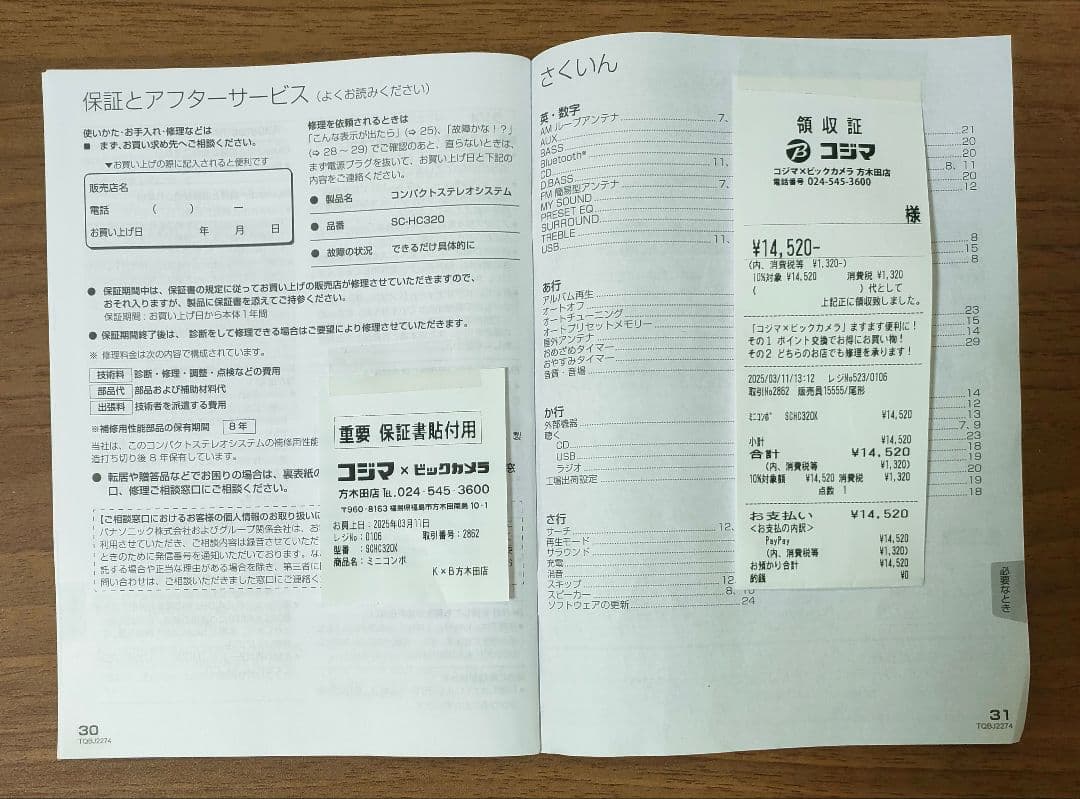 保証とアフターサービス（よくお読みください）
使いかた・お手入れ・修理などは
■ まず、お買い求め先へご相談ください。
▼お買い上げの際に記入されると便利です
販売店名
電話 （ ） ー
お買い上げ日 年 月 日
修理を依頼されるときは
「こんな表示が出たら」(⇨ 25)、「故障かな！？」
(⇨ 28 ～ 29) でご確認のあと、直らないときは、
まず電源プラグを抜いて、お買い上げ日と下記の
内容をご連絡ください。
● 製品名 コンパクトステレオシステム
● 品番 SC-HC320
● 故障の状況 できるだけ具体的に
● 保証期間中は、保証書の規定に従ってお買い上げの販売店が修理させていただきますので、
おそれ入りますが、製品に保証書を添えてご持参ください。
保証期間：お買い上げ日から本体1年間
● 保証期間終了後は、診断をして修理できる場合はご要望により修理させていただきます。
※ 修理料金は次の内容で構成されています。
技術料 診断・修理・調整・点検などの費用
部品代 部品および補助材料代
出張料 技術者を派遣する費用
※補修用性能部品の保有期間 8年
当社は、このコンパクトステレオシステムの補修用性能
製
造打ち切り後 8 年保有しています。
● 転居や贈答品などでお困りの場合は、裏表紙の
窓
口、修理ご相談窓口にご相談ください。
【ご相談窓口におけるお客様の個人情報のお取り扱いに
パナソニック株式会社およびグループ関係会社は、お
利用させていただき、ご相談内容は録音させていただ
ときのために発信番号を通知いただいております。な
託する場合や正当な理由がある場合を除き、第三者に
問い合わせは、ご相談いただきました窓口にご連絡く
30
TQBJ2274
重要 保証書貼付用
コジマ×ビックカメラ
方木田店 TEL.024-545-3600
〒960-8163 福島県福島市方木田開島 10-1
お買上日：2025年03月11日
レジNo：0106 取引番号：2862
型番 ：SCHC320K
商品名：ミニコンポ
K×B方木田店
さくいん
英・数字
AM ループアンテナ 7、
AUX 21
BASS 20
Bluetooth® 20
CD 11、 8、11
D.BASS 20
FM 簡易型アンテナ 7、 12
MY SOUND
PRESET EQ
SURROUND
TREBLE 8
USB 11、 15
8
あ行
アルバム再生
オートオフ 23
オートチューニング 15
オートプリセットメモリー 14
屋外アンテナ 29
おめざめタイマー
おやすみタイマー
音質・音場
か行
外部機器 14
聴く 12
CD 13
USB 7、9
ラジオ 23
工場出荷設定 18
19
20
19
18
さ行
サーチ 12、
再生モード
サラウンド
充電
消音
スキップ 12
スピーカー 8、10
ソフトウェアの更新 24
必要なとき
31
TQBJ2274
領収証
コジマ
コジマ×ビックカメラ 方木田店
電話番号 024-545-3600
様
¥14,520-
(内、消費税等 ¥1,320-)
10%対象 ¥14,520 消費税 ¥1,320
( )代として
上記正に領収致しました。
「コジマ×ビックカメラ」ますます便利に！
その１ ポイント交換でお得にお買い物！
その２ どちらのお店でも修理を承ります！
2025/03/11/13:12 レジNo523/0106
取引No2862 販売員15555/尾形
ミニコンポ SCHC320K ¥14,520
小計 ¥14,520
合計 ¥14,520
(内、消費税等 ¥1,320)
10%対象額 ¥14,520 ¥1,320
点数 1
お支払い ¥14,520
<お支払の内訳>
PayPay ¥14,520
(内、消費税等 ¥1,320)
お預かり合計 ¥14,520
お釣銭 ¥0